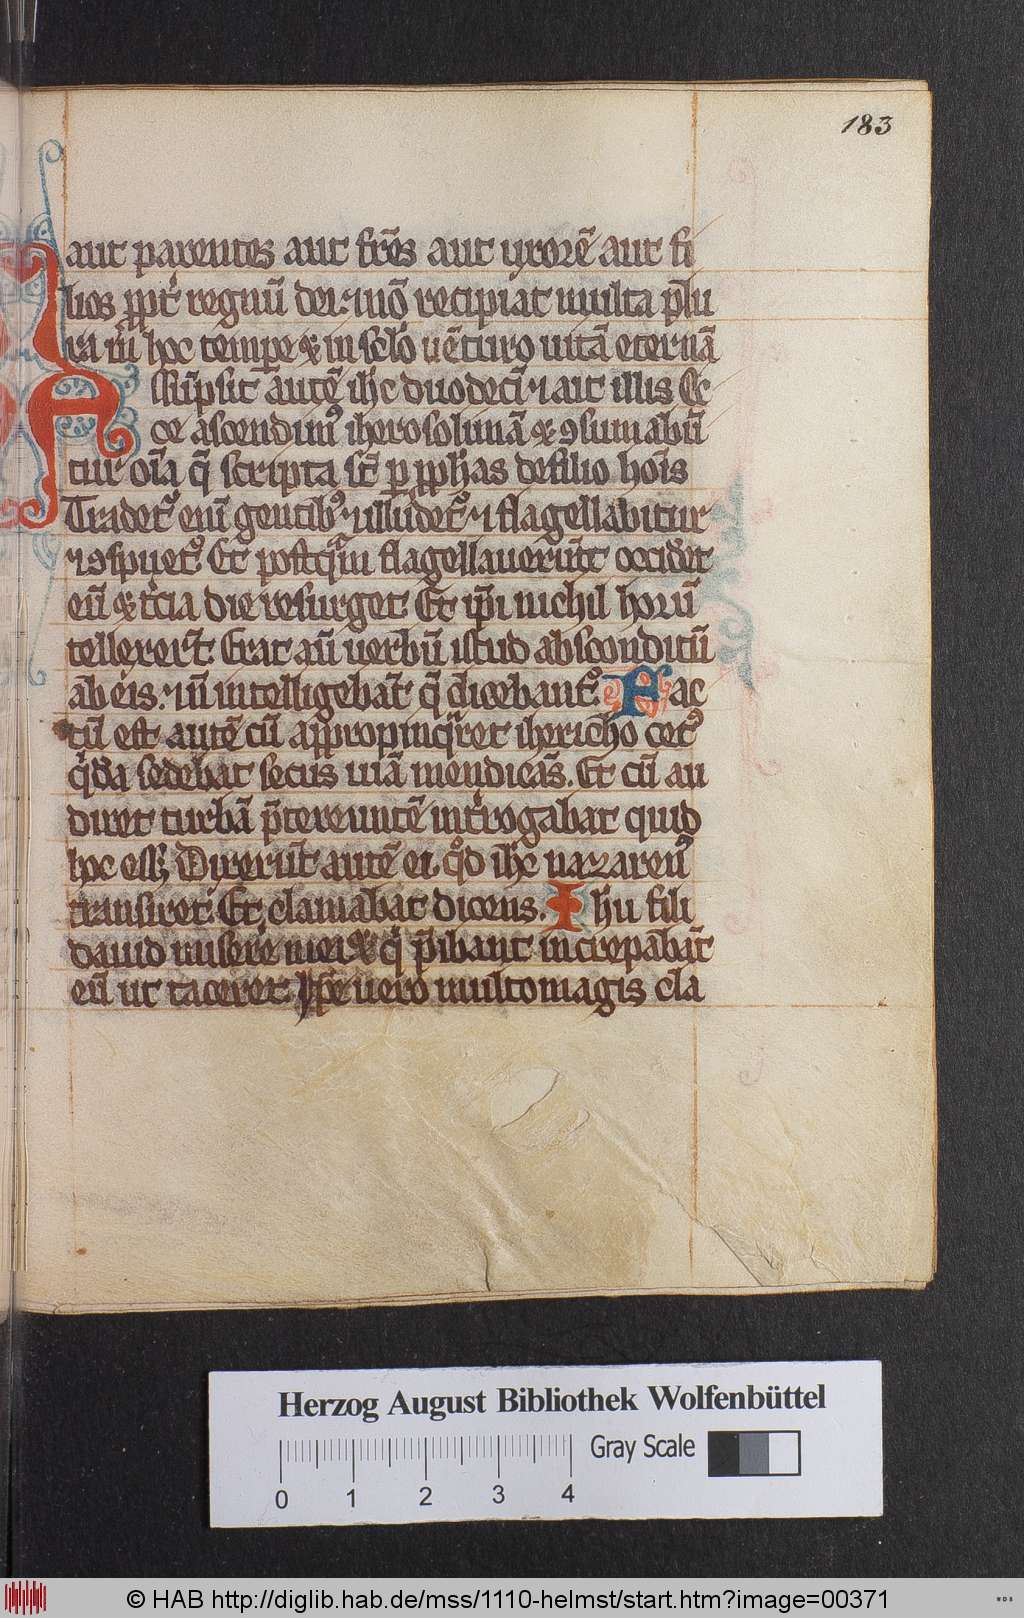 183
aut parentes aut fr̄es aut uxorē aut fi
lios ꝓpt̾ regnū dei ⁊ nō recipiat multa plu
ra ī hoc tempe ⁊ in sc̄lo uēturo uitā eternā
Assūpsit autē ih̄c duodecī ⁊ ait illis Ec
ce ascendim᷒ iherosolimā ⁊ ꝯsumabūt
tur oīa q̄ scripta st̄ ꝑ ꝓph̄as de filio hoīs
Tradet᷑ enī gentib᷒ ⁊ illudet᷑ ⁊ flagellabitur
⁊ ꝯspuet᷑ Et postqͣm flagellauerūt occidēt
eū ⁊ t̾cia die resurget. Et ip̄i nichil horū
tellexer̄t. Erat aū uerbū istud absconditū
ab eis. ⁊ nͫ intelligebāt q̄ dicebant᷑. Fac
tū est autē cū appropinqͣret ihericho cec᷒
qͥdā sedebat secus uiā mendicās. Et cū au
diret turbā p̄tereuntē int̾rogabat quid
hoc ess&. Dixerūt autē ei qͦd ih̄c nazaren᷒
transiret. Et clamabat dicens. Ihu fili
dauid miserere mei ⁊ qͥ p̄ibant increpabāt
eū ut taceret. Ipse uero multomagis cla
Herzog August Bibliothek Wolfenbüttel
Gray Scale
0 1 2 3 4
© HAB http://diglib.hab.de/mss/1110-helmst/start.htm?image=00371